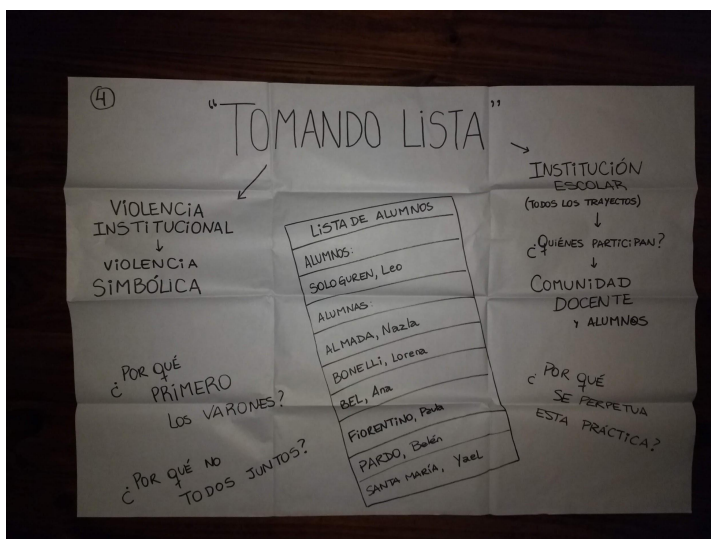 4
"TOMANDO LISTA"
VIOLENCIA
INSTITUCIONAL
↓
VIOLENCIA
SIMBÓLICA
¿POR QUÉ
PRIMERO
LOS VARONES?
¿POR QUÉ NO
TODOS JUNTOS?
LISTA DE ALUMNOS
ALUMNOS:
SOLOGUREN, Leo
ALUMNAS:
ALMADA, Nazla
BONELLI, Lorena
BEL, Ana
FIORENTINO, Paula
PARDO, Belén
SANTA MARÍA, Yael
INSTITUCIÓN
ESCOLAR
(TODOS LOS TRAYECTOS)
↓
¿QUIÉNES PARTICIPAN?
↓
COMUNIDAD
DOCENTE
Y ALUMN@S
¿POR QUÉ
SE PERPETUA
ESTA PRÁCTICA?